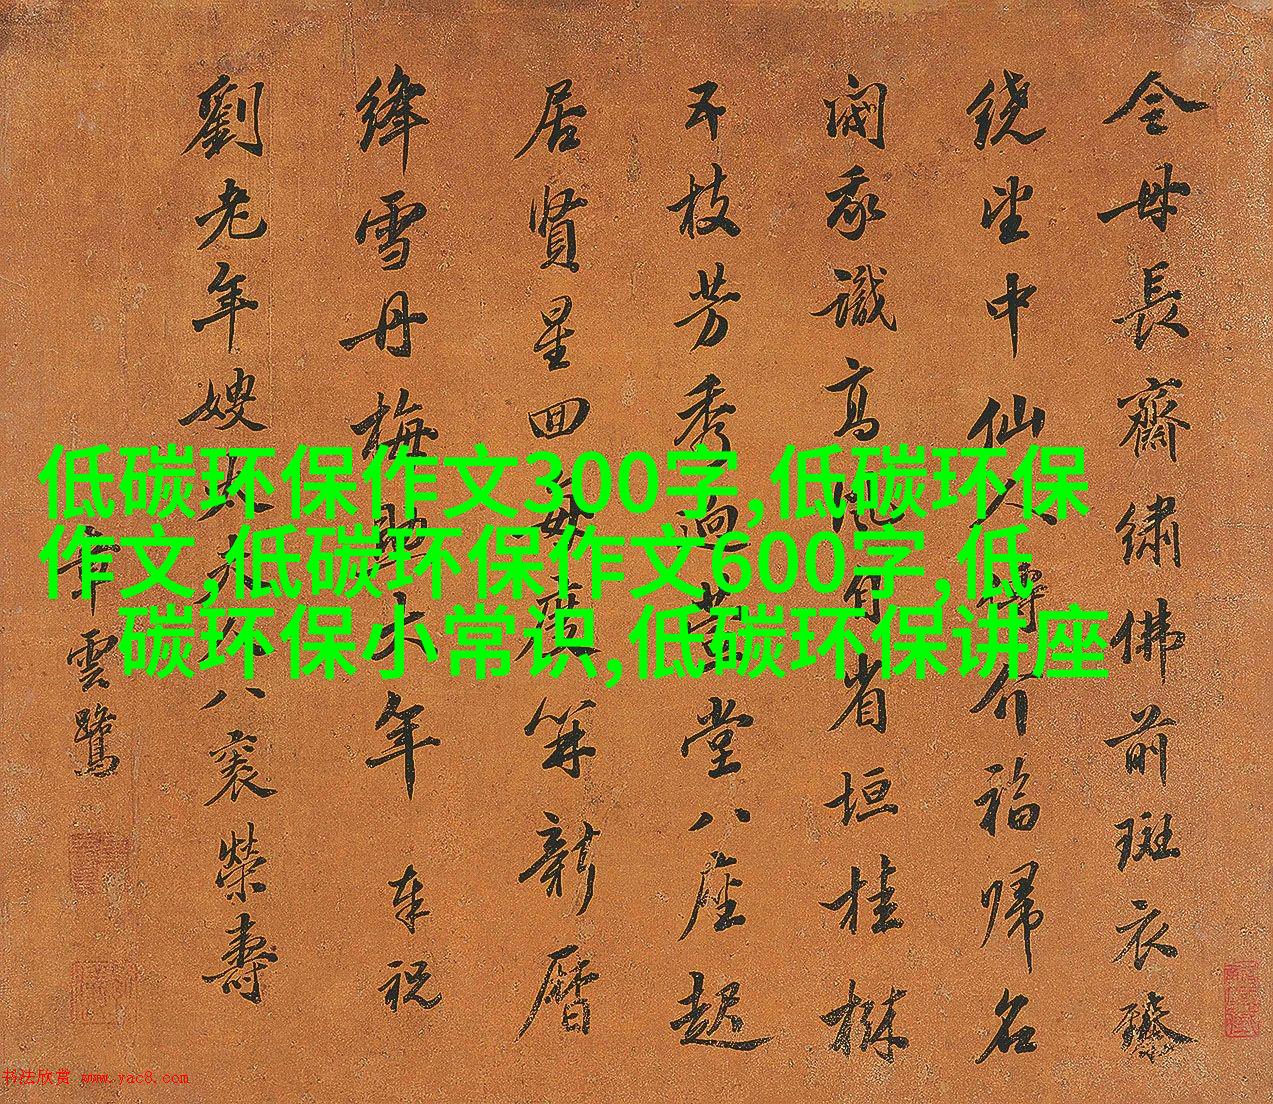 母長齋繡佛前斑衣
繞坐中仙人介福歸名
閥我識高自省垣桂
枝芳秀迥萱堂八座起
居賢星回度算新曆
絳雪丹梅助大年 奉祝
劉老年嫂太夫人八袠榮壽
雲鷺
低碳环保作文300字,低碳环保
作文,低碳环保作文600字,低
碳环保小常识,低碳环保讲座
书法欣赏 www.yac8.com